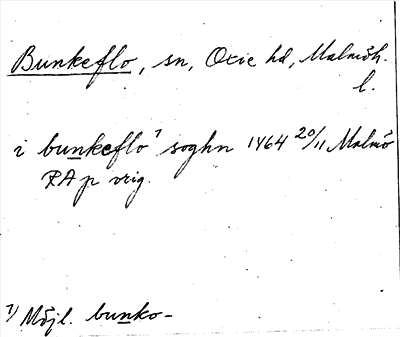 Bunkeflo, sn, Oxie hd, Malmöh.
l.
i bunkeflo¹⁾ soghn 1464 20/11 Malmö
RA p orig.
¹⁾ Möjl. bunko-